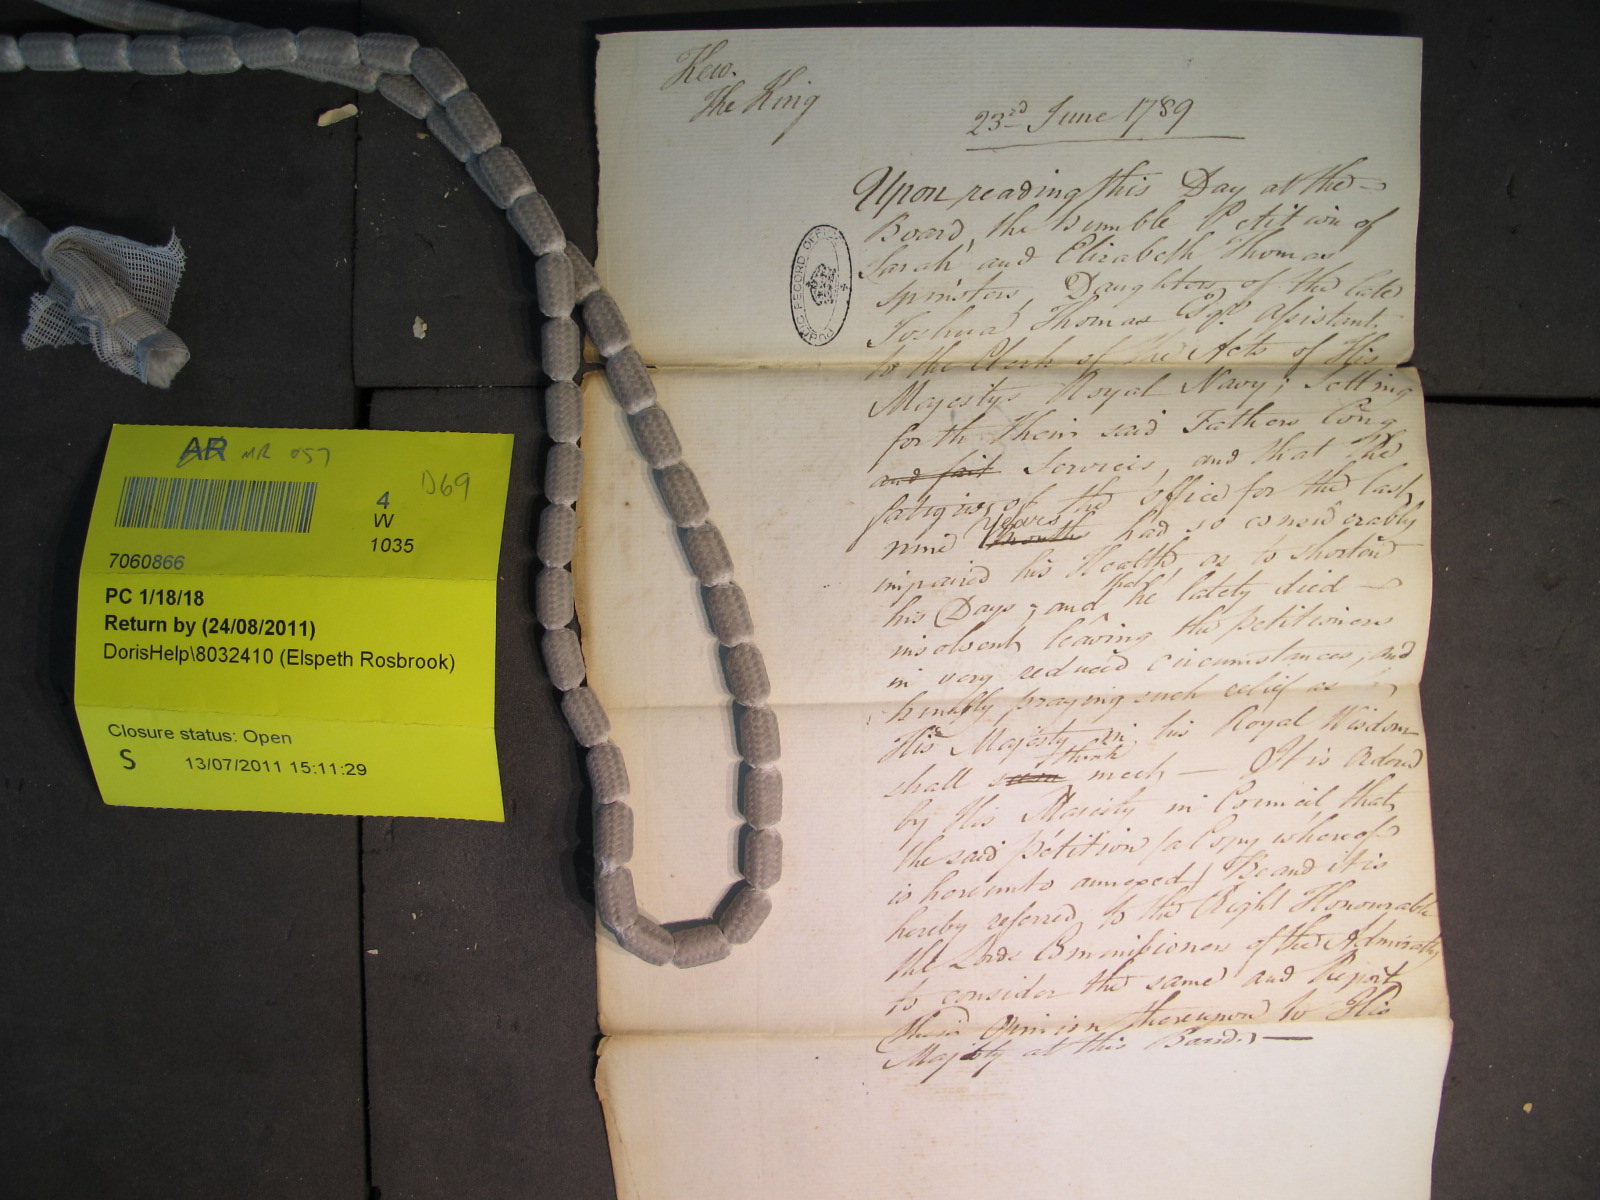 Kew.
The King
23rd June 1789
Upon reading this Day at the
Board, the humble Petition of
Sarah and Elizabeth Thomas
Spinsters, Daughters of the late
Joshua Thomas Esqr. Assistant
to the Clerk of the Acts of His
Majestys Royal Navy; Setting
forth Their said Fathers Long
and fait Services, and that the
fatigues of the Office for the last
nine Years Months had so considerably
impaired his Health, as to shorten
his Days; and that he lately died
insolvent leaving the petitioners
in very reduced circumstances, and
humbly praying such relief as
His Majesty in his Royal Wisdom
shall seem think meet, — It is Ordered
by His Majesty in Council, that
the said Petition (a Copy whereof
is hereunto annexed) Be and it is
hereby referred, to the Right Honourable
the Lords Commissioners of the Admiralty
to consider the same and Report
their Opinion thereupon to His
Majesty at this Board, —
PUBLIC RECORD OFFICE
AR MR 057
D69
4
W
1035
7060866
PC 1/18/18
Return by (24/08/2011)
DorisHelp\8032410 (Elspeth Rosbrook)
Closure status: Open
S 13/07/2011 15:11:29